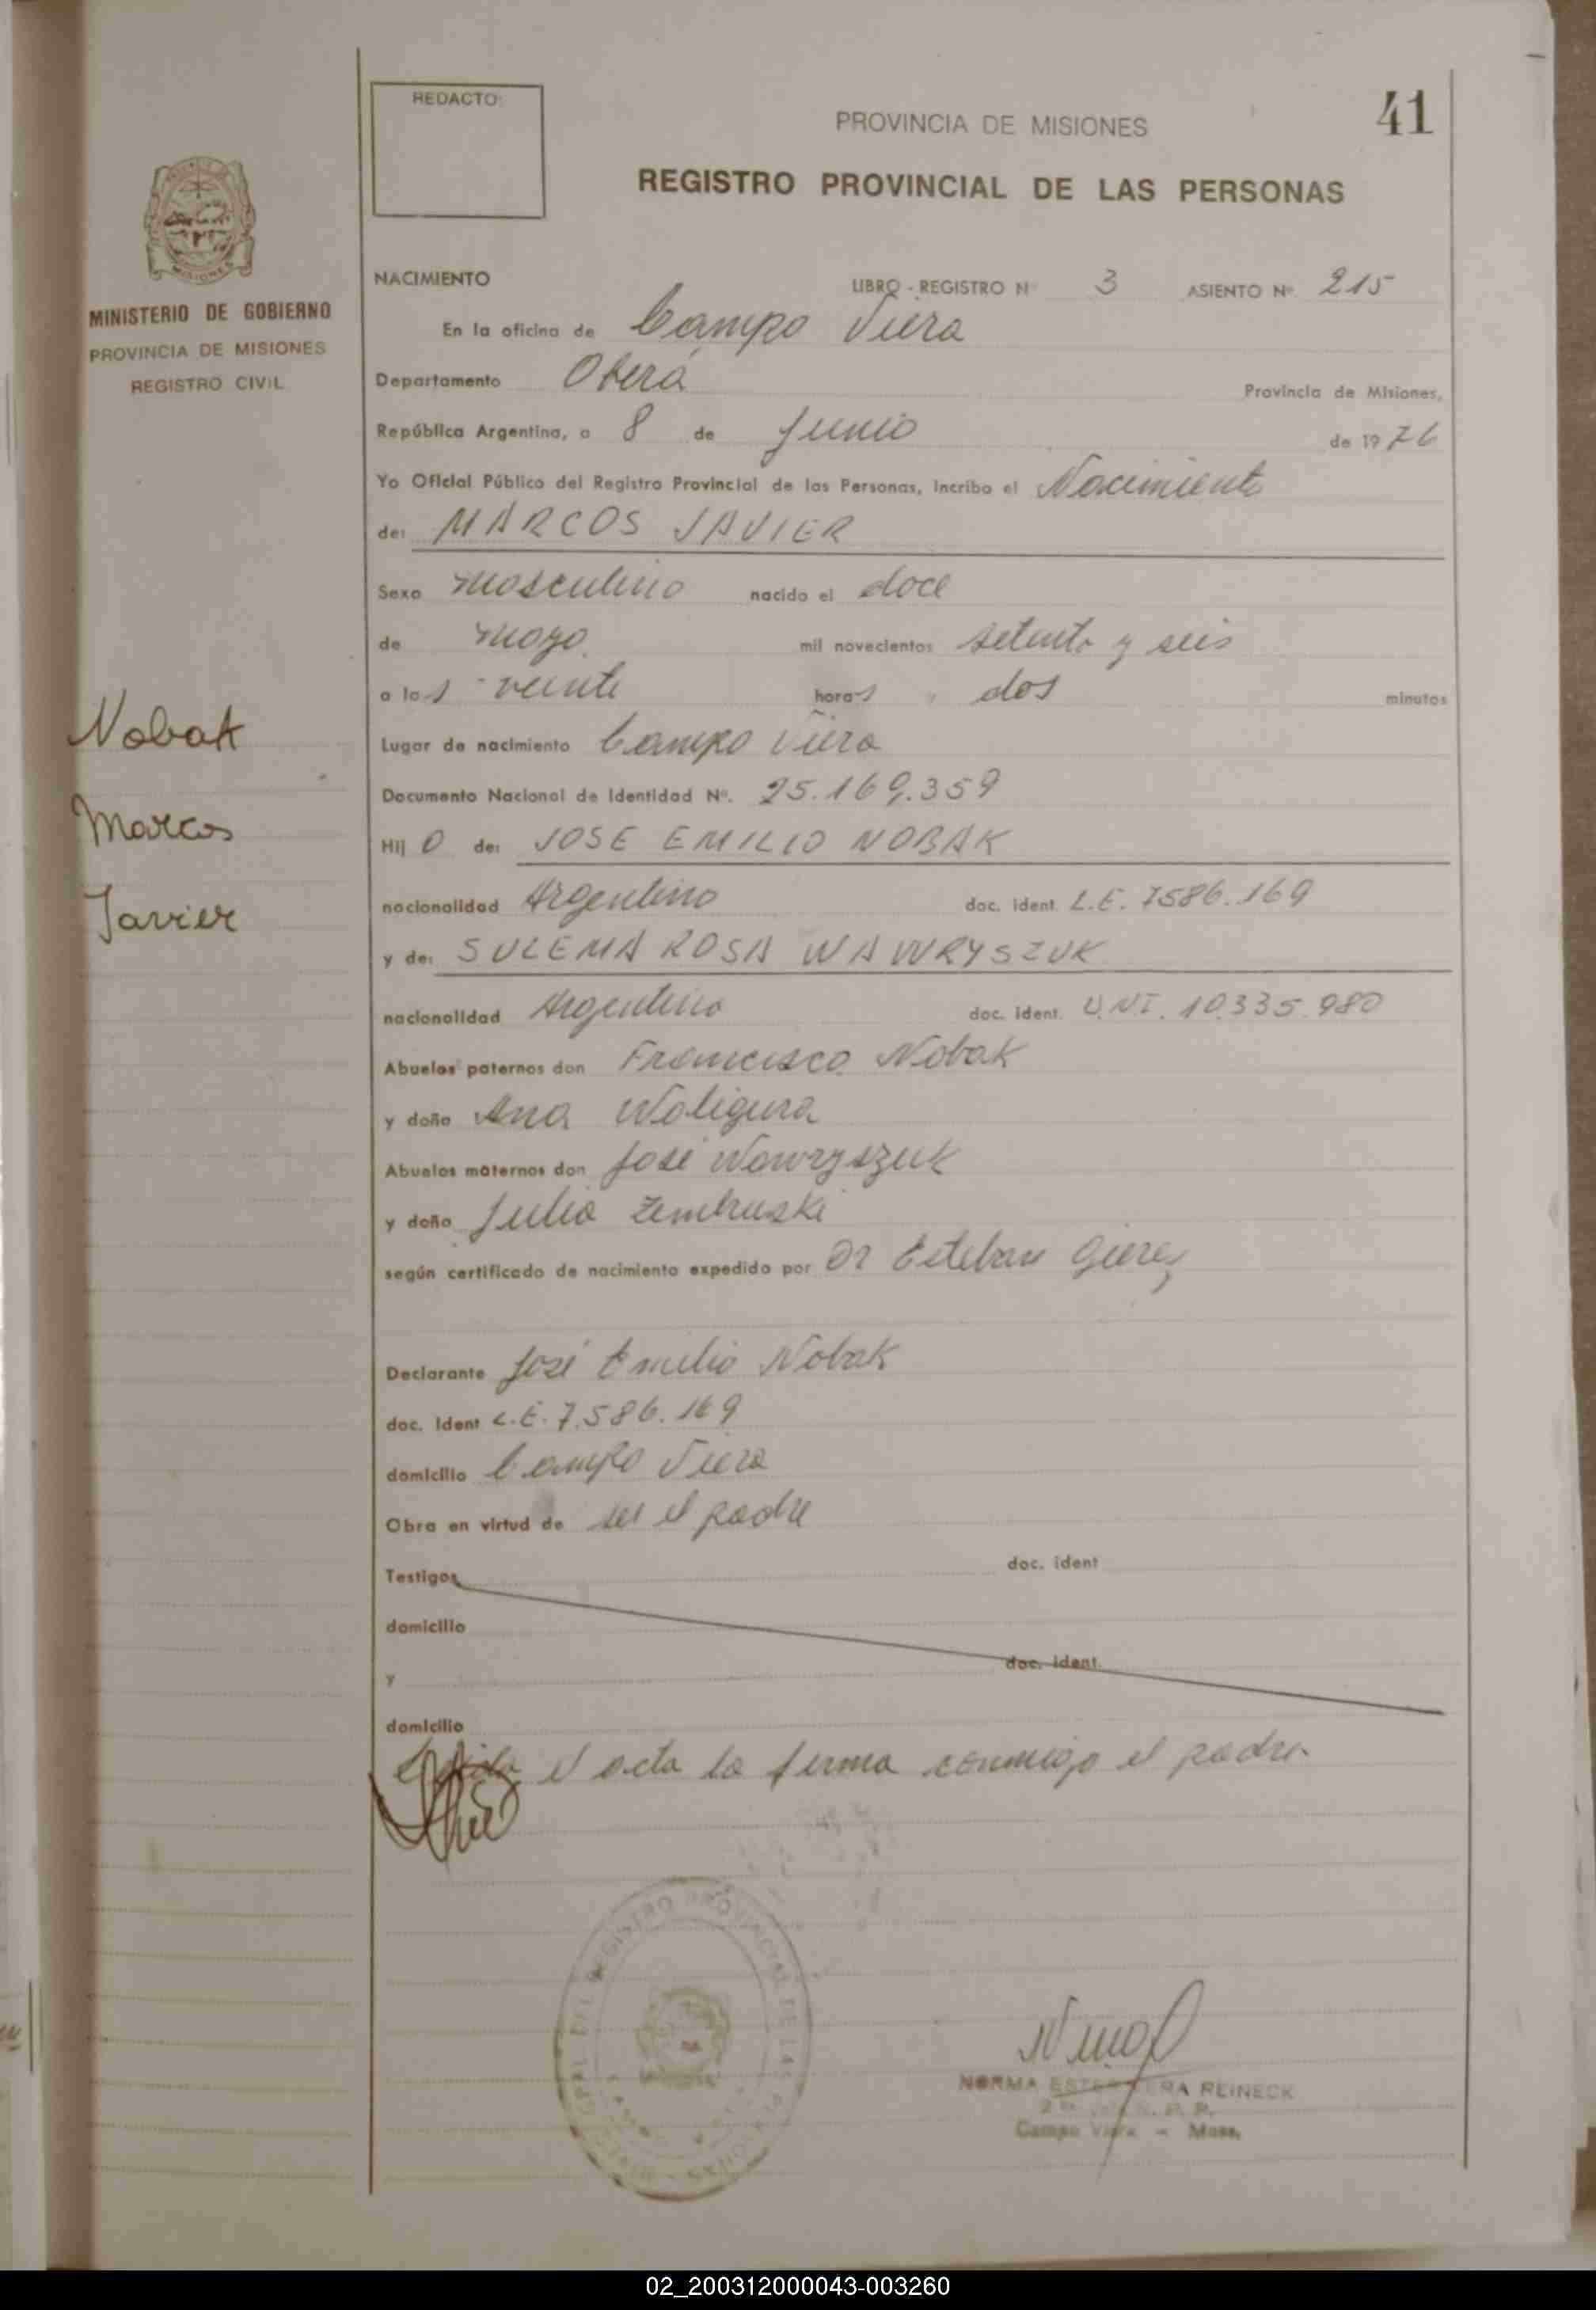 REDACTO:
41
PROVINCIA DE MISIONES
REGISTRO PROVINCIAL DE LAS PERSONAS
MISIONES
MINISTERIO DE GOBIERNO
PROVINCIA DE MISIONES
REGISTRO CIVIL
NACIMIENTO LIBRO - REGISTRO Nº 3 ASIENTO Nº 215
En la oficina de Campo Viera
Departamento Oberá Provincia de Misiones,
República Argentina, a 8 de Junio de 1976
Yo Oficial Público del Registro Provincial de las Personas, incribo el Nacimiento
de: MARCOS JAVIER
Sexo masculino nacido el doce
de mayo mil novecientos setenta y seis
a las veinte horas dos minutos
Nobak
Marcos
Javier
Lugar de nacimiento Campo Viera
Documento Nacional de Identidad Nº. 25.169.359
Hij o de: JOSE EMILIO NOBAK
nacionalidad Argentino doc. ident. L.E. 7586.169
y de: SULEMA ROSA WAWRYSZUK
nacionalidad Argentina doc. ident. D.N.I. 10.335.980
Abuelos paternos don Francisco Nobak
y doña Ana Woligura
Abuelos maternos don José Wawryszuk
y doña Julia Zembruski
según certificado de nacimiento expedido por Dr Esteban
Declarante José Emilio Nobak
doc. ident L.E. 7.586.169
domicilio Campo Viera
Obra en virtud de ser el padre
Testigos doc. ident
domicilio
y doc. ident.
domicilio
el acta la firma conmigo el padre.
REGISTRO PROVINCIAL DE LAS PERSONAS
NORMA ESTER REINECK
Campo Viera - Mnes.
02_200312000043-003260